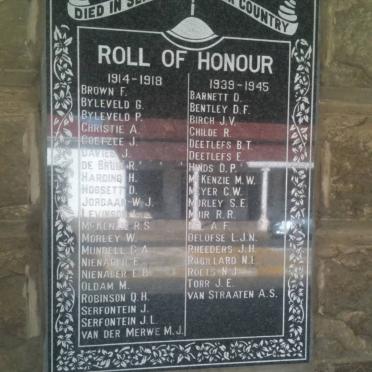 DIED IN COUNTRY
ROLL OF HONOUR
1914-1918
BROWN F.
BYLEVELD G.
BYLEVELD P.
CHRISTIE A.
COETZEE J.
DAVIES J.
DE BRUIN R.
HARDING H.
HOBSETT D.
JORDAAN W.J.
LEVINSON
MCKENZIE R.S.
MORLEY W.
MUNDELL G.A.
NIENABER E.B.
OLDAM M.
ROBINSON Q.H.
SERFONTEIN J.
SERFONTEIN J.L.
VAN DER MERWE M.J.
1939-1945
BARNETT D.
BENTLEY D.F.
BIRCH J.V.
CHILDE R.
DEETLEFS B.T.
DEETLEFS E.
HINDS D.P.
MCKENZIE M.W.
MEYER C.W.
MORLEY S.E.
MUIR R.R.
A.F.
DELOFSE L.J.N.
RHEEDERS J.H.
ROBILLARD N.L.
ROETS N.J.
TORR J.E.
VAN STRAATEN A.S.